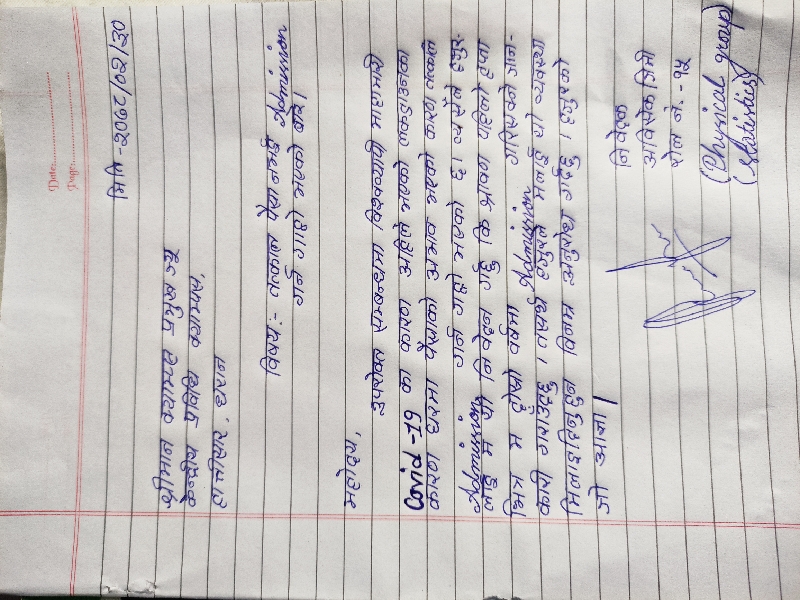 Date:
Page:
मिति -२०७८/०२/३०
श्रीमान क्याम्पस प्रमुख ज्यू
केन्द्रीय प्रविधि क्याम्पस,
हात्तीसार, धरान
विषय:- तत्काल पैसा नभई Admission
गर्न गाह्रो भएको बारे।
महोदय,
उपरोक्त सम्बन्धमा विश्वव्यापी माहामारी
Covid -19 का कारण अहिले भएको लकडाउनका
कारण घरमा पैसाको अभाव भएको कारण तत्काल
Admission गर्न गाह्रो भएको छ। त्यसैले हजुर-
लाई म यो निवेदन गर्छु कि श्रावण पहिलो हप्ता
भित्र म दोस्रो वर्षमा Admission गरिसक्ने जान-
कारी गराउँदछु। तसर्थ हजुरले मलाई यो व्यवस्था
मिलाइदिनुहुन विनम्र अनुरोध गर्दछु। हजुरको
जो आज्ञा।
निवेदक
अविसेक जिमी
रोल नं. -१५
(Physical group)
(statistics)